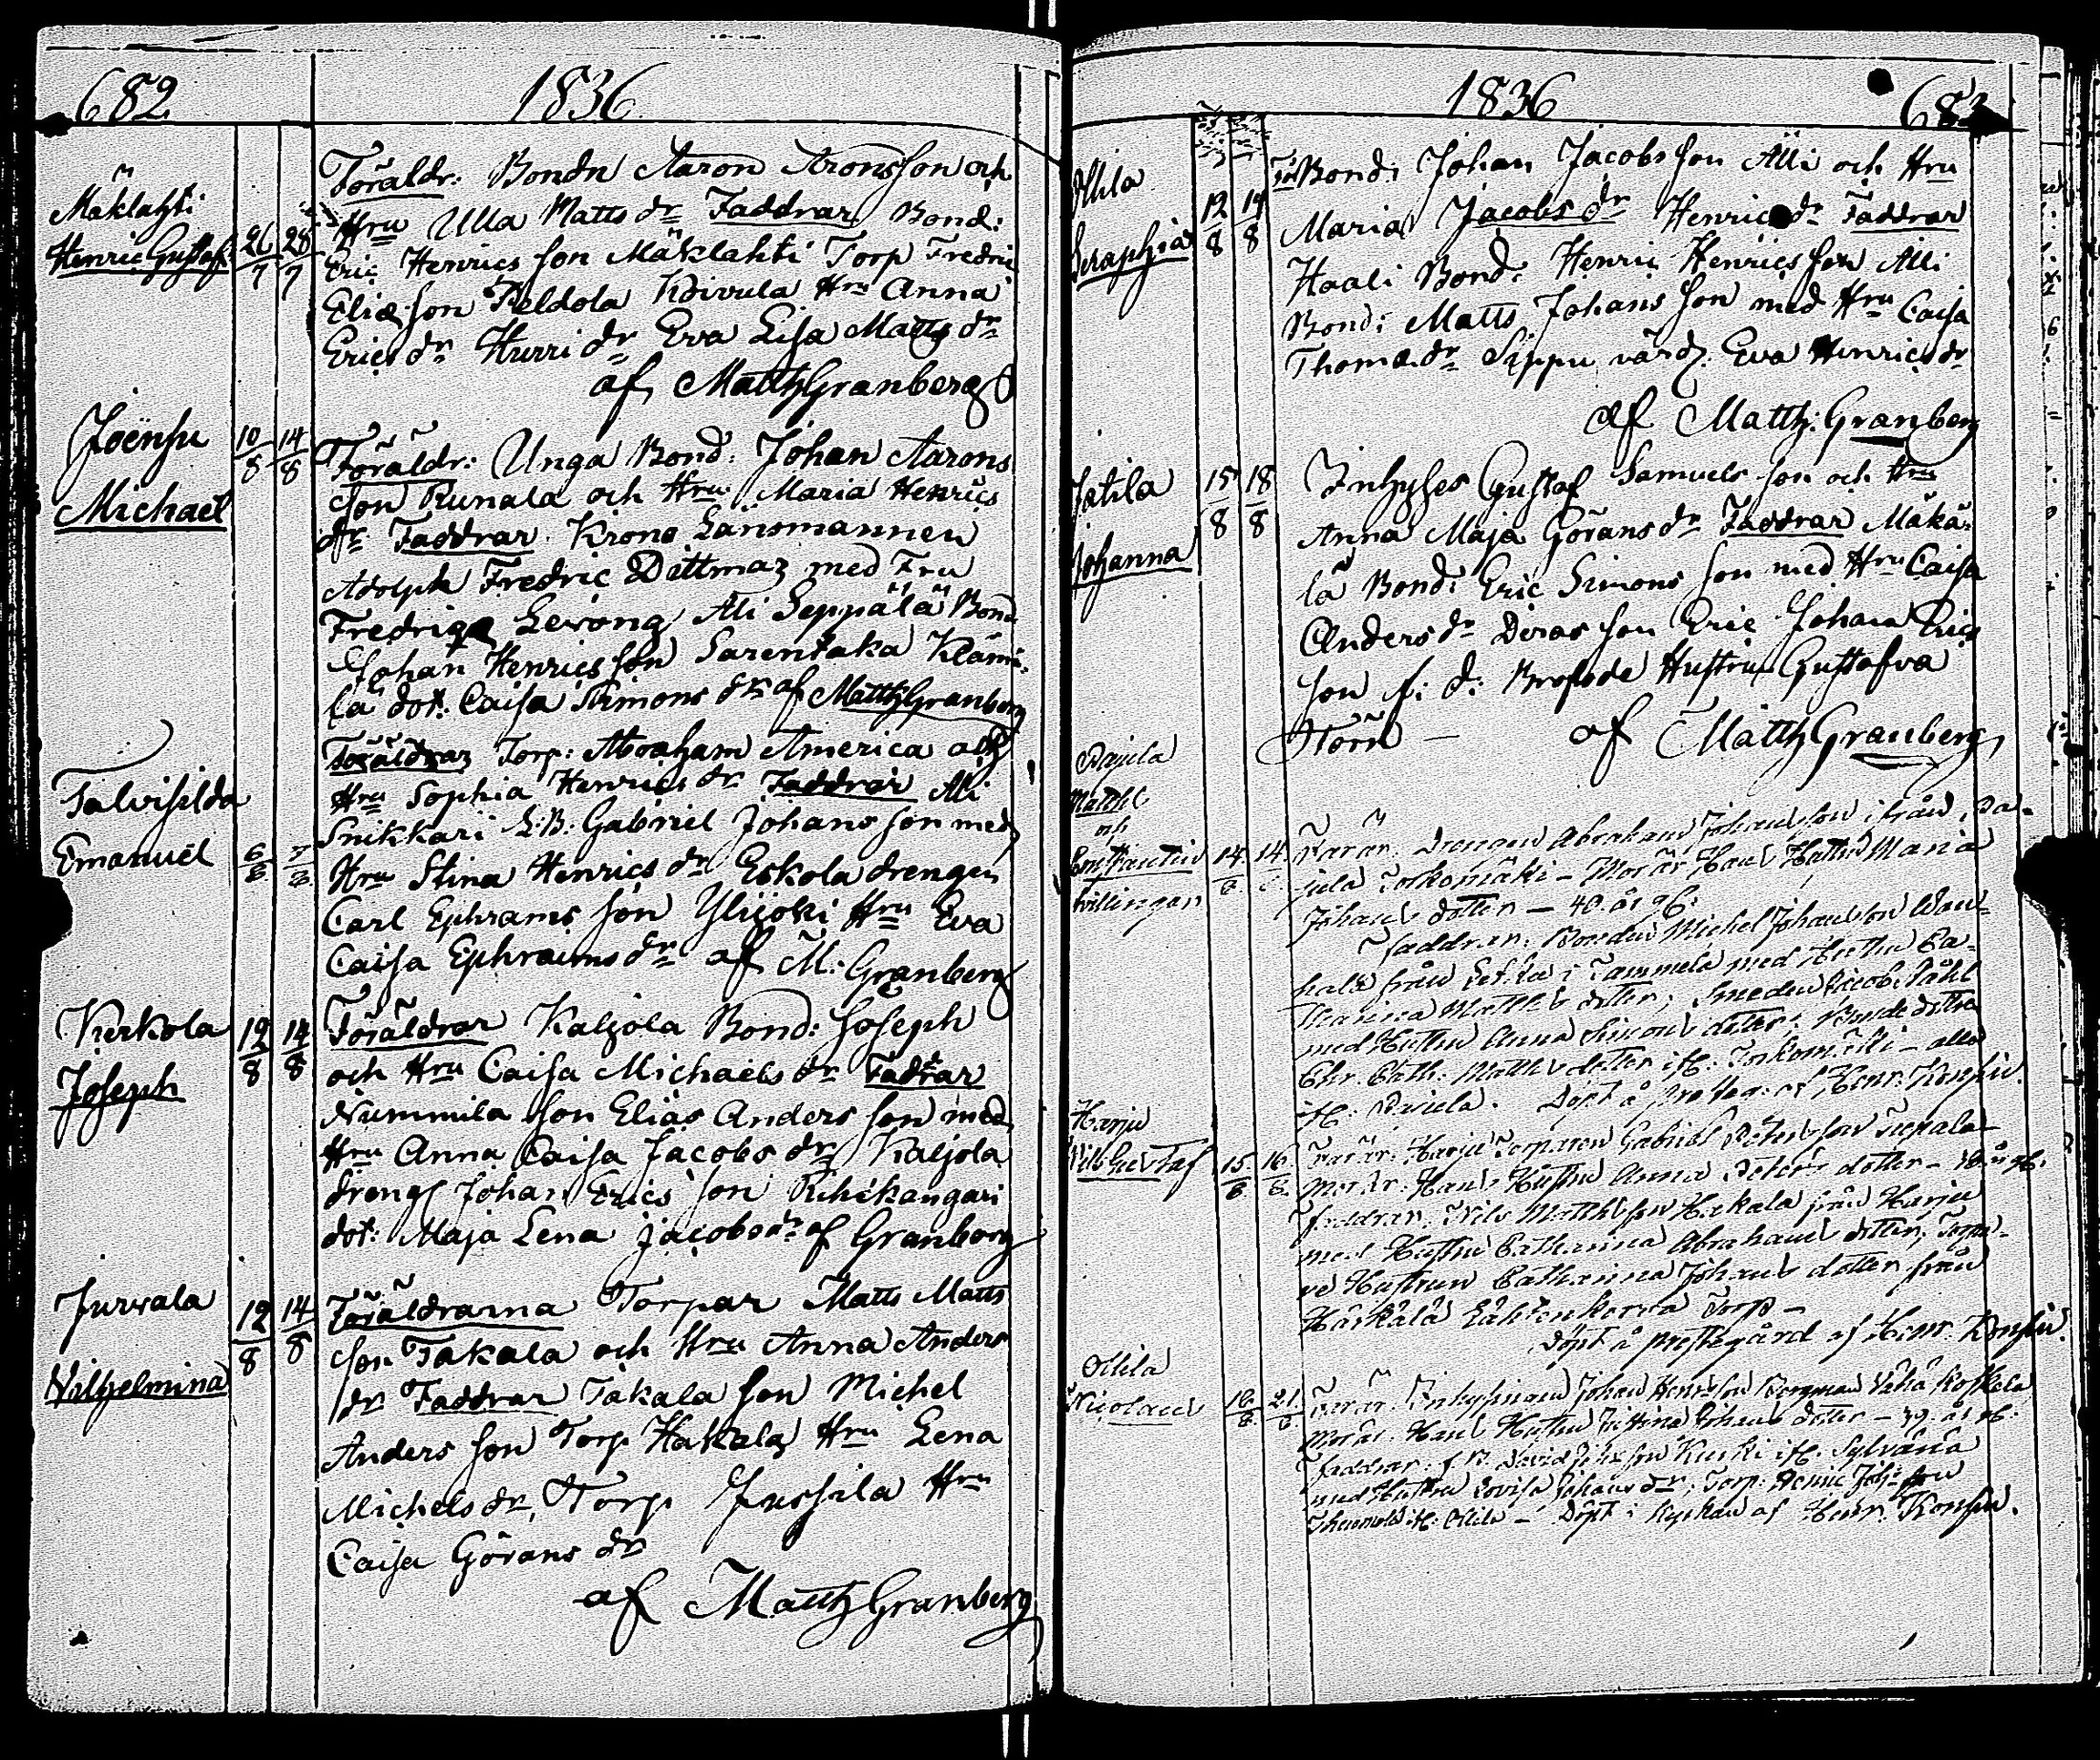 682
1836
Mäklahti
Henric Gustaf
26/7 28/7
Föräldr: Bondn Aaron Aronsson och
Hru Ulla Matts dr Faddrar Bond:
Eric Henrics son Mäklahti Torp Fredric
Eliæ son Peldola Koivula Hru Anna
Erics dr Hurri dr Eva Lisa Matts dr
af Matth Granberg
Joensu
Michaël
10/8 14/8
Föräldr: Unga Bond: Johan Aarons
son Runala och Hru Maria Henrics
dr Faddrar Krono Länsmannen
Adolph Fredric Dittmar med Fru
Fredriqa Ali Seppälä Bond
Johan Henrics son Sarentaka Klämi-
lä dot: Caisa Simons dr af Matth Granberg
Talvisilda
Emanuël
6/8 7/8
Föräldrar Torp: Abraham America och
Hru Sophia Henrics dr Faddrar Ali
Snikkari L:B: Gabriel Johans son med
Hru Stina Henrics dr Eskola drengen
Carl Ephrams son Ylijoki Hru Eva
Caisa Ephraims dr af M: Granberg
Kerkola
Joseph
12/8 14/8
Föräldrar Kaljola Bond: Joseph
och Hru Caisa Michaels dr Fadrar
Nummila son Elias Anders son med
Hru Anna Caisa Jacobs dr Kaljola
dreng Johan Erics son Riihikangari
dot: Maja Lena Jacobs dr af Granberg
Jurvala
Vilhelmina
12/8 14/8
Föräldrarna Torpar Matts Matts
son Takala och Hru Anna Anders
dr Faddrar Takala son Michel
Anders son Torp Hakala Hru Lena
Michels dr, Torp Jussila Hru
Caisa Görans dr
af Matth Granberg
1836
683
Ollila
Seraphia
12/8 14/8
Bond: Johan Jacobs son Alli och Hru
Maria Jacobs dr Henrics dr Faddrar
Haali Bond: Henric Henrics son Alli
Bond: Matts Johans son med Hru Caisa
Thomæ dr Sippu värd: Eva Henrics dr
af Matth: Granberg
Jatila
Johanna
15/8 18/8
Inhyses Gustaf Samuels son och Hru
Anna Maja Görans dr Faddrar Mäkä-
lä Bond: Eric Simons son med Hru Caisa
Anders dr Deras son Eric Johan Erics
son f: d: Hustru Gustafva
af Matth Granberg
Pajula
Matthl
och
Constantin
tvillingar
14/8 14/8
Farär: Drengen Abraham Johansson ifrån Pa-
jula Torkomäki – Morär Hans Hustru Maria
Johans dotter – 40 år gl:
Faddrar: Bonden Michel Johansson
från i Tammela med Hustru Ca-
tharina Matths dotter; Smeden Jacob Ståhl
med Hustru Anna Simons dotter;
Chr: Cath: Matths dotter – alla
Döpt å af Henr: Konsin.
Harju
15/8 16/8
Farär: Harju Torparen Gabriel
Morär: Hans Hustru Anna dotter –
Faddrar: Nils Matthsson Hakala från Harju
med Hustru Catharina Abrahams dotter,
Hustrun Catharina Johans dotter från
Härkälä Torp –
Döpt å prestegård af Henr: Konsin.
Ollila
Nicolaus
16/8 21/8
Farär: Inhysman Johan Henrsson Bergman Vähä Koskela
Morär: Hans Hustru Justina Johans dotter – 39 år gl:
Faddrar: David Kurki
med Hustru Lovisa Johans dr, Torp: Henric
Ollila – Döpt i Kyrkan af Henr: Konsin.